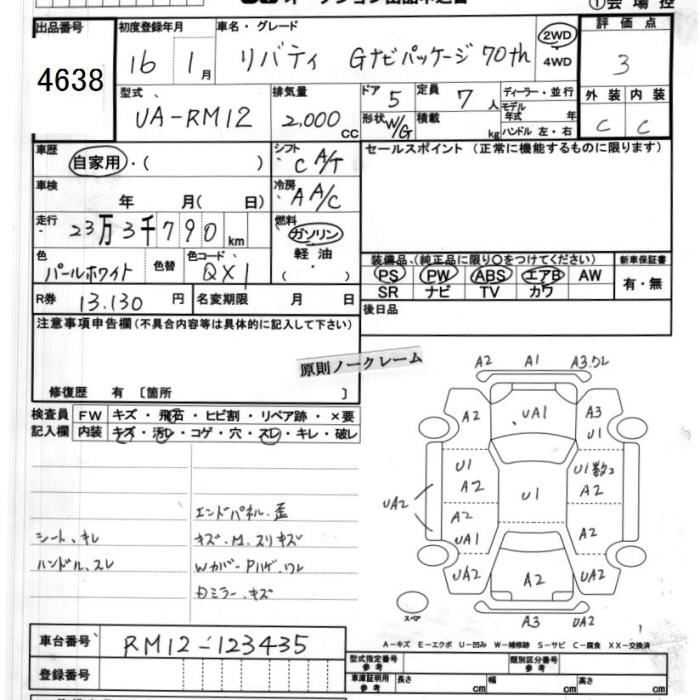 ①会場控
出品番号
4638
初度登録年月
16 1月
車名・グレード
リバティ Gナビパッケージ 70th
2WD
4WD
評価点
3
型式
UA-RM12
排気量
2,000cc
ドア 5
定員 7人
ディーラー・並行
モデル年式 年
形状 W/G
積載 kg
ハンドル 左・右
外装 内装
C C
車歴
自家用・( )
シフト
C A/T
セールスポイント (正常に機能するものに限ります)
車検
年 月( 日)
冷房
A A/C
走行
23万3千790km
燃料
ガソリン
軽油
( )
色
パールホワイト
色替
色コード
QX1
装備品、(純正品に限り○をつけてください)
新車保証書
PS PW ABS エアB AW
SR ナビ TV カワ
有・無
R券 13.130円
名変期限 月 日
後日品
注意事項申告欄(不具合内容等は具体的に記入して下さい)
原則ノークレーム
修復歴 有 〔箇所 〕
検査員
記入欄
FW キズ・飛石・ヒビ割・リペア跡・×要
内装 キズ・汚レ・コゲ・穴・スレ・キレ・破レ
エンドパネル.歪
シート、キレ
キズ・M.スリキズ
ハンドル、スレ
Wカバー・Pハゲ.ワレ
Dミラー.キズ
A2 A1 A3.ワレ
A2 UA1 A3
U1
U1 U1数コ
A2 U1 A2
UA2
A2 A2
UA1
UA2 A2 UA2
スペア
A3 UA2
A－キズ E－エクボ U－凹み W－補修跡 S－サビ C－腐食 XX－交換済
車台番号
RM12-123435
登録番号
型式指定番号
参考
類別区分番号
参考
車庫証明用
参考
長さ cm
幅 cm
高さ cm